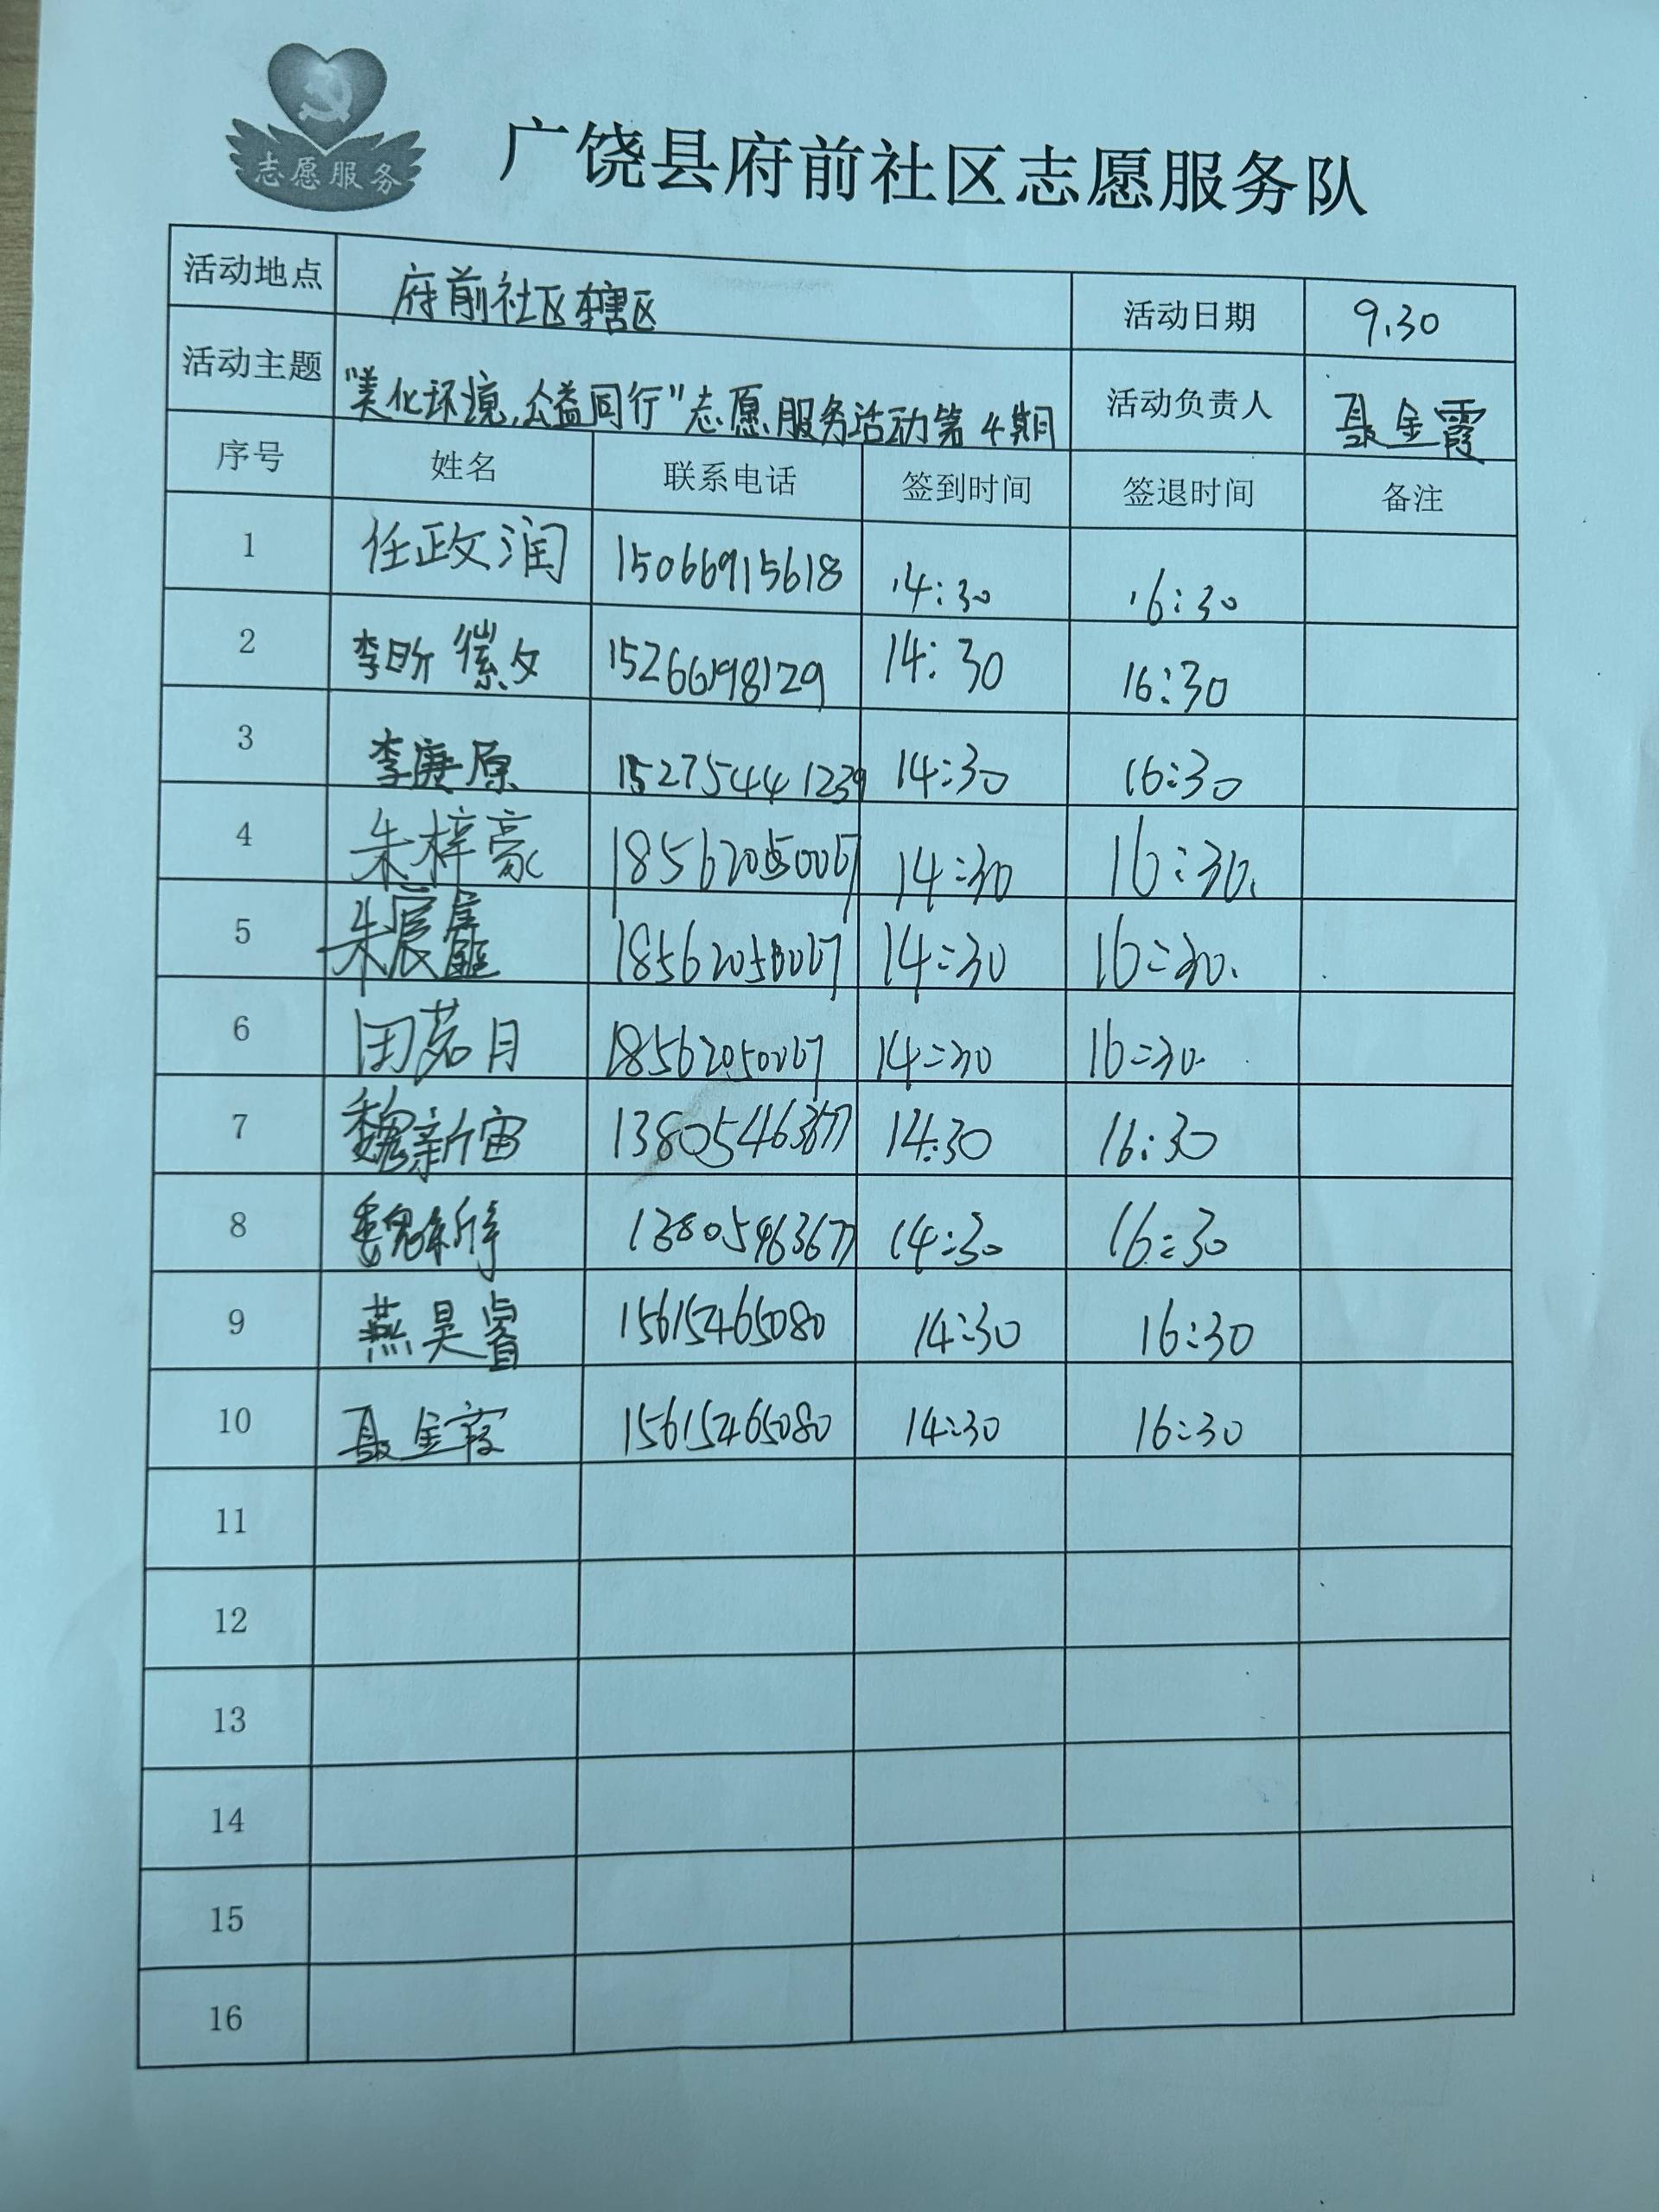 志愿服务
广饶县府前社区志愿服务队
活动地点 府前社区辖区 活动日期 9.30
活动主题 "美化环境,公益同行"志愿服务活动第4期 活动负责人 聂金霞
序号 姓名 联系电话 签到时间 签退时间 备注
1 任政润 15066915618 14:30 16:30
2 李昕 文 15266198129 14:30 16:30
3 李庚原 15275441239 14:30 16:30
4 朱梓豪 18562050067 14:30 16:30.
5 朱宸 18562050067 14:30 16:30.
6 田茗月 18562050067 14:30 16:30.
7 魏新宙 13805463677 14:30 16:30
8 魏新 13805463677 14:30 16:30
9 燕昊睿 15615465080 14:30 16:30
10 聂金霞 15615465080 14:30 16:30
11
12
13
14
15
16